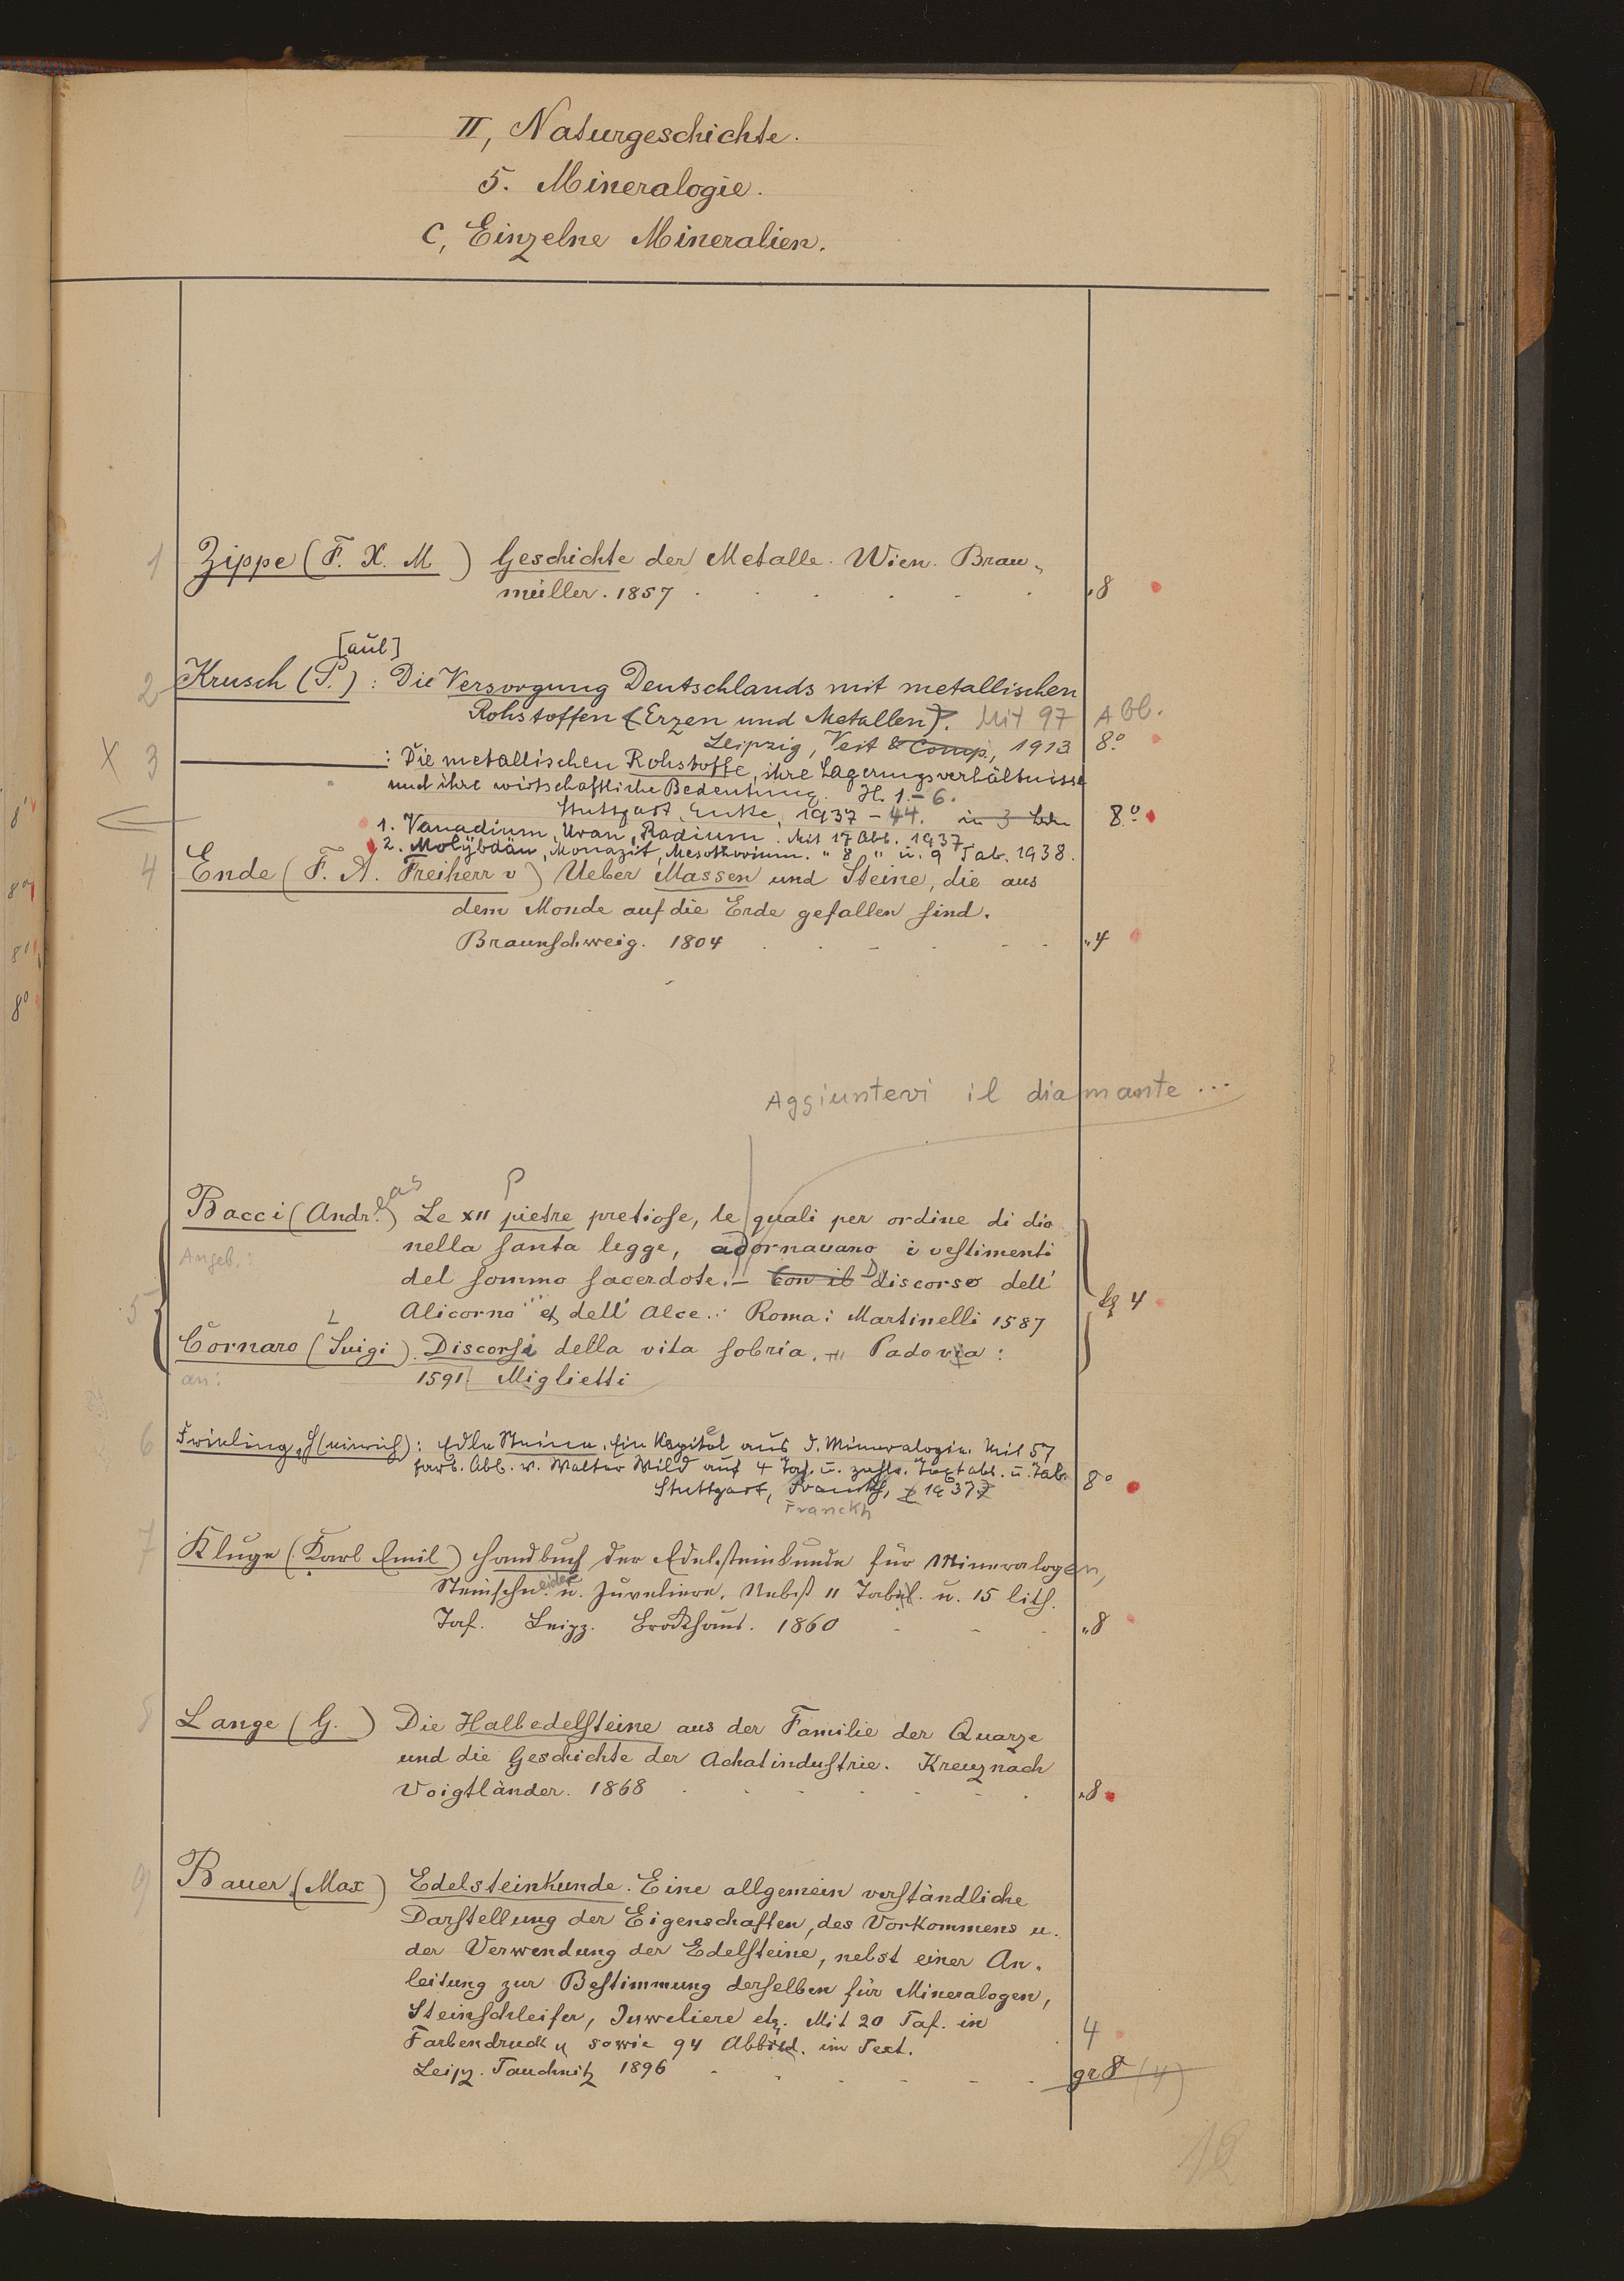 II, Naturgeschichte.
5. Mineralogie.
C, Einzelne Mineralien.
1 Zippe (F. X. M) Geschichte der Metalle. Wien. Brau-
müller. 1857 8
[aul]
2 Krusch (P.) : Die Versorgung Deutschlands mit metallischen
Rohstoffen (Erzen und Metallen). Mit 97 Abb.
Leipzig, Veit & Comp., 1913 8°
X 3 : Die metallischen Rohstoffe, ihre Lagerungsverhältnisse
und ihre wirtschaftliche Bedeutung. H. 1.-6.
Stuttgart, Enke, 1937-44. in 3 Bdn 8°
1. Vanadium, Uran, Radium. Mit 17 Abb. 1937.
2. Molybdän, Monazit, Mesothorium. " 8 " u. 9 Tab. 1938.
4 Ende (F. A. Freiherr v) Ueber Massen und Steine, die aus
dem Monde auf die Erde gefallen sind.
Braunschweig. 1804 4
Aggiuntevi il diamante ...
Bacci (Andreas) Le XII pietre pretiose, le quali per ordine di dio
nella santa legge, adornauano i vestimenti
Angeb.:
del sommo sacerdote. – Con il Discorso dell'
5 Alicorno et dell' Alce. Roma: Martinelli 1587 4
Cornaro (Luigi). Discorsi della vita sobria. Padova:
an: 1591 Miglietti
6 Frieling, H(einrich): Edle Steine. Ein Kapitel aus d. Mineralogie. Mit 57
farb. Abb. v. Walter Wild auf 4 Taf. u. zahlr. Textabb. u. Tab.
Stuttgart, Franckh, 1937 8°
Franckh
7 Kluge (Karl Emil) Handbuch der Edelsteinkunde für Mineralogen,
Steinschneider u. Juweliere. Nebst 11 Tabell. u. 15 lith.
Taf. Leipz. Brockhaus. 1860 8
8 Lange (G.) Die Halbedelsteine aus der Familie der Quarze
und die Geschichte der Achatindustrie. Kreuznach
Voigtländer. 1868 8
9 Bauer (Max) Edelsteinkunde. Eine allgemein verständliche
Darstellung der Eigenschaften, des Vorkommens u.
der Verwendung der Edelsteine, nebst einer An-
leitung zur Bestimmung derselben für Mineralogen,
Steinschleifer, Juweliere etz. Mit 20 Taf. in
Farbendruck sowie 94 Abbild. im Text. 4
Leipz. Tauchnitz 1896 gr 8 (4)
12